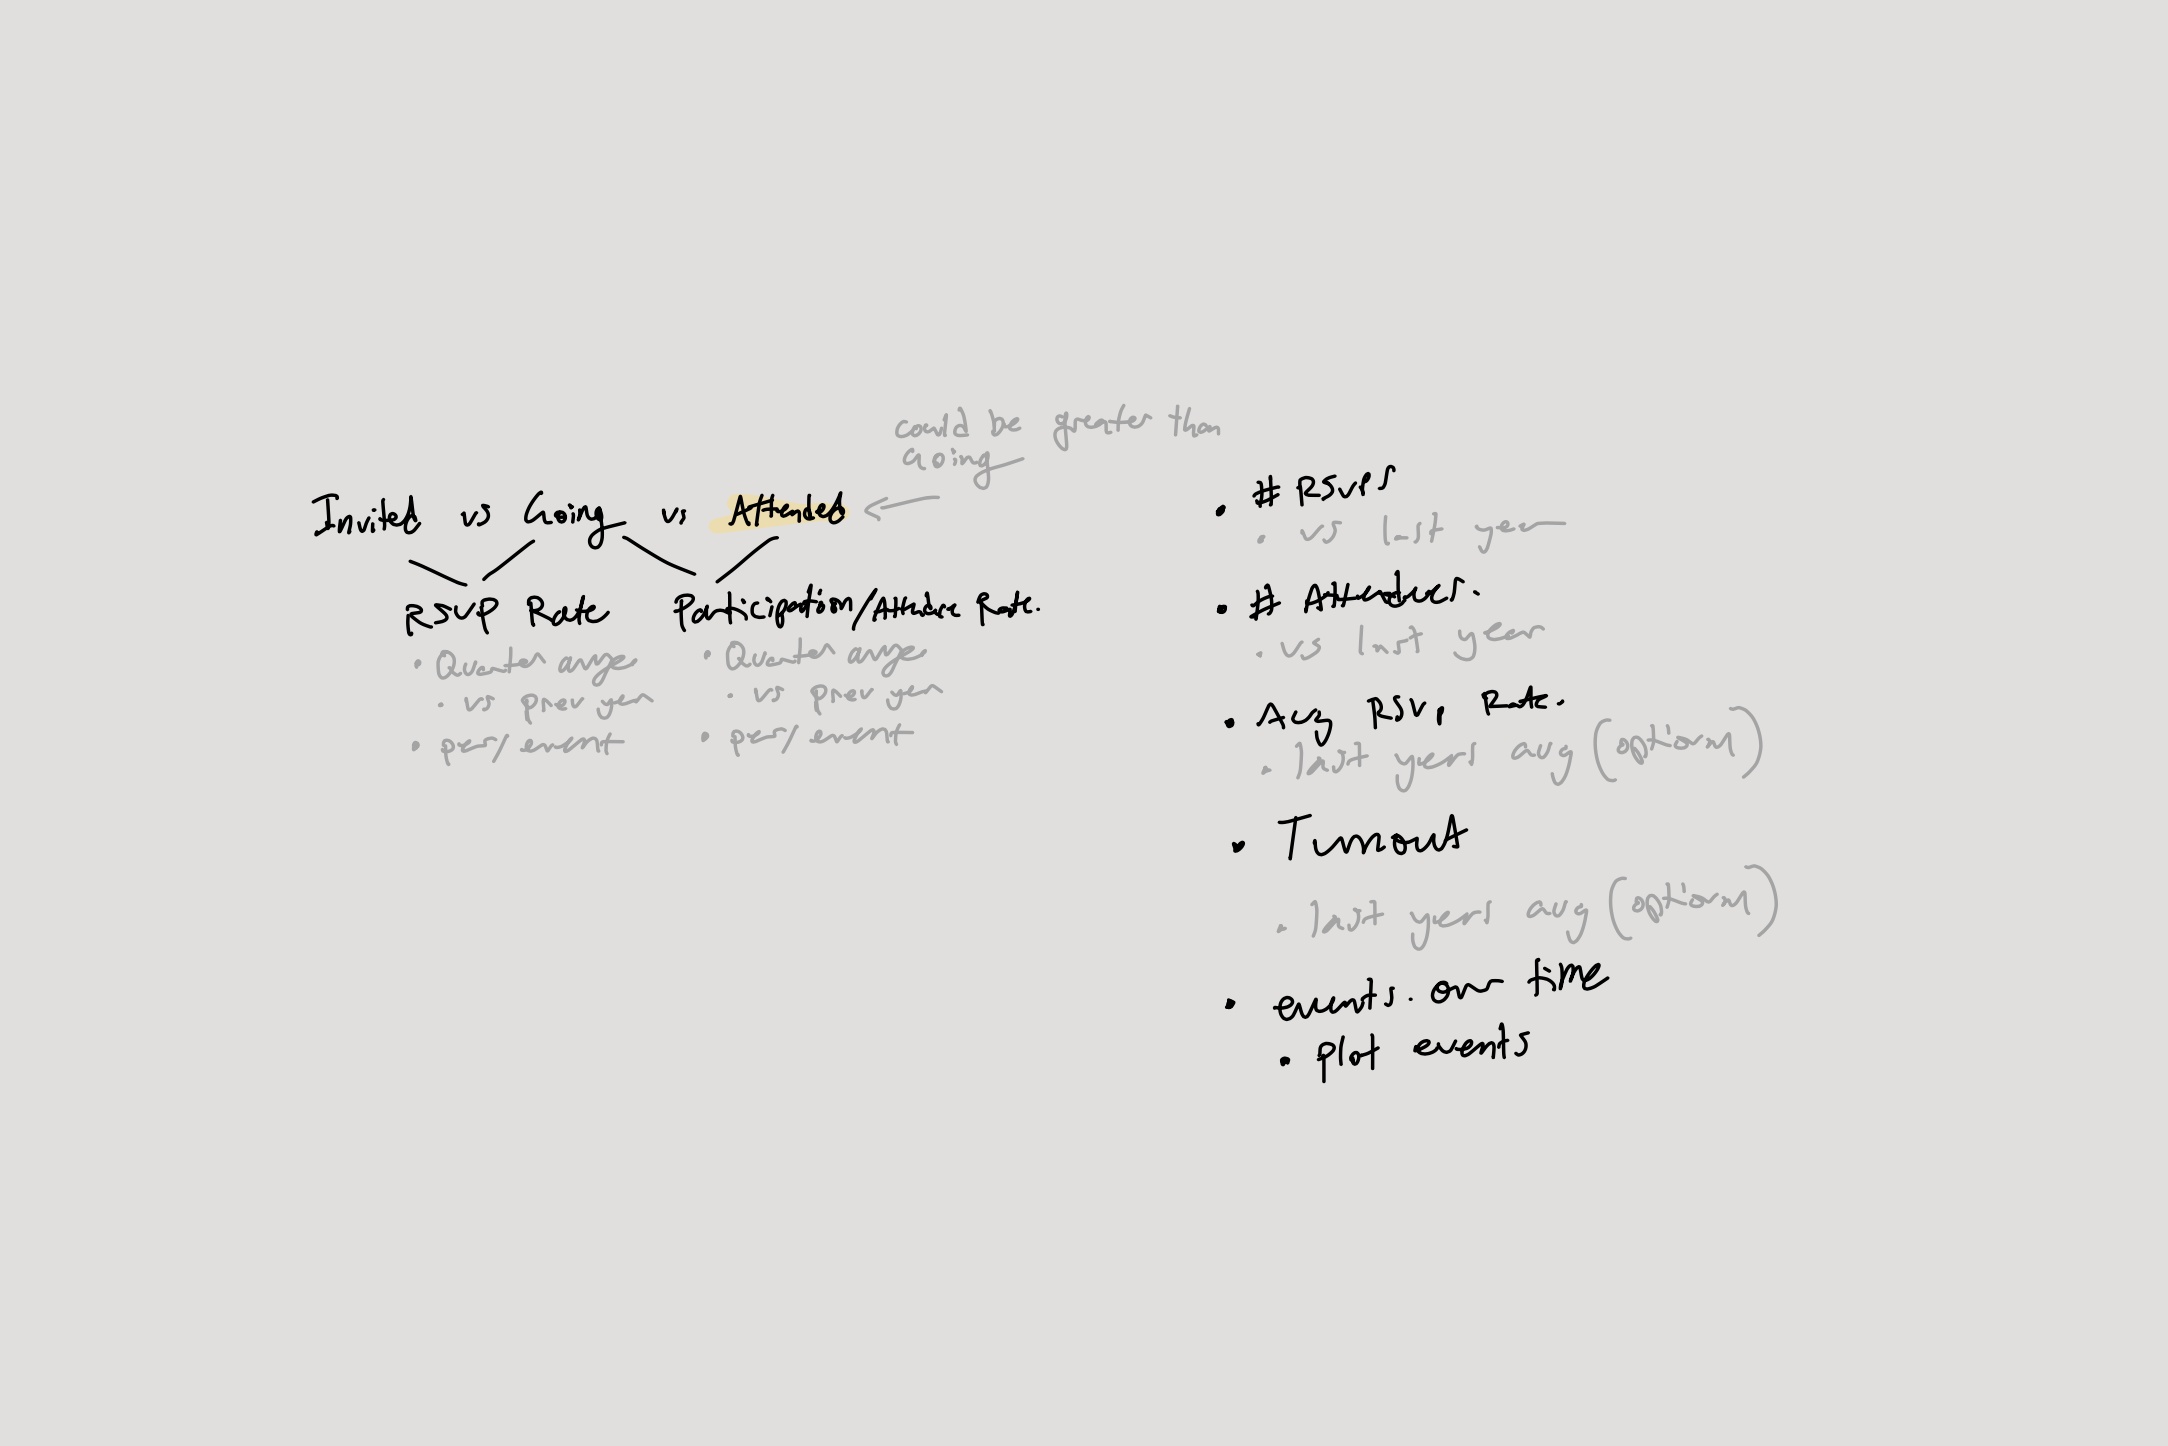 could be greater than
Going
Invited vs Going vs Attended
RSVP Rate
• Quarter avrge
• vs prev year
• per/event
Participation/Attendance Rate.
• Quarter avrge
• vs prev year
• per/event
• # RSVPS
• vs last year
• # Attendees.
• vs last year
• Avg RSVP Rate.
• last years avg (optional)
• Turnout
• last years avg (optional)
• events. over time
• plot events